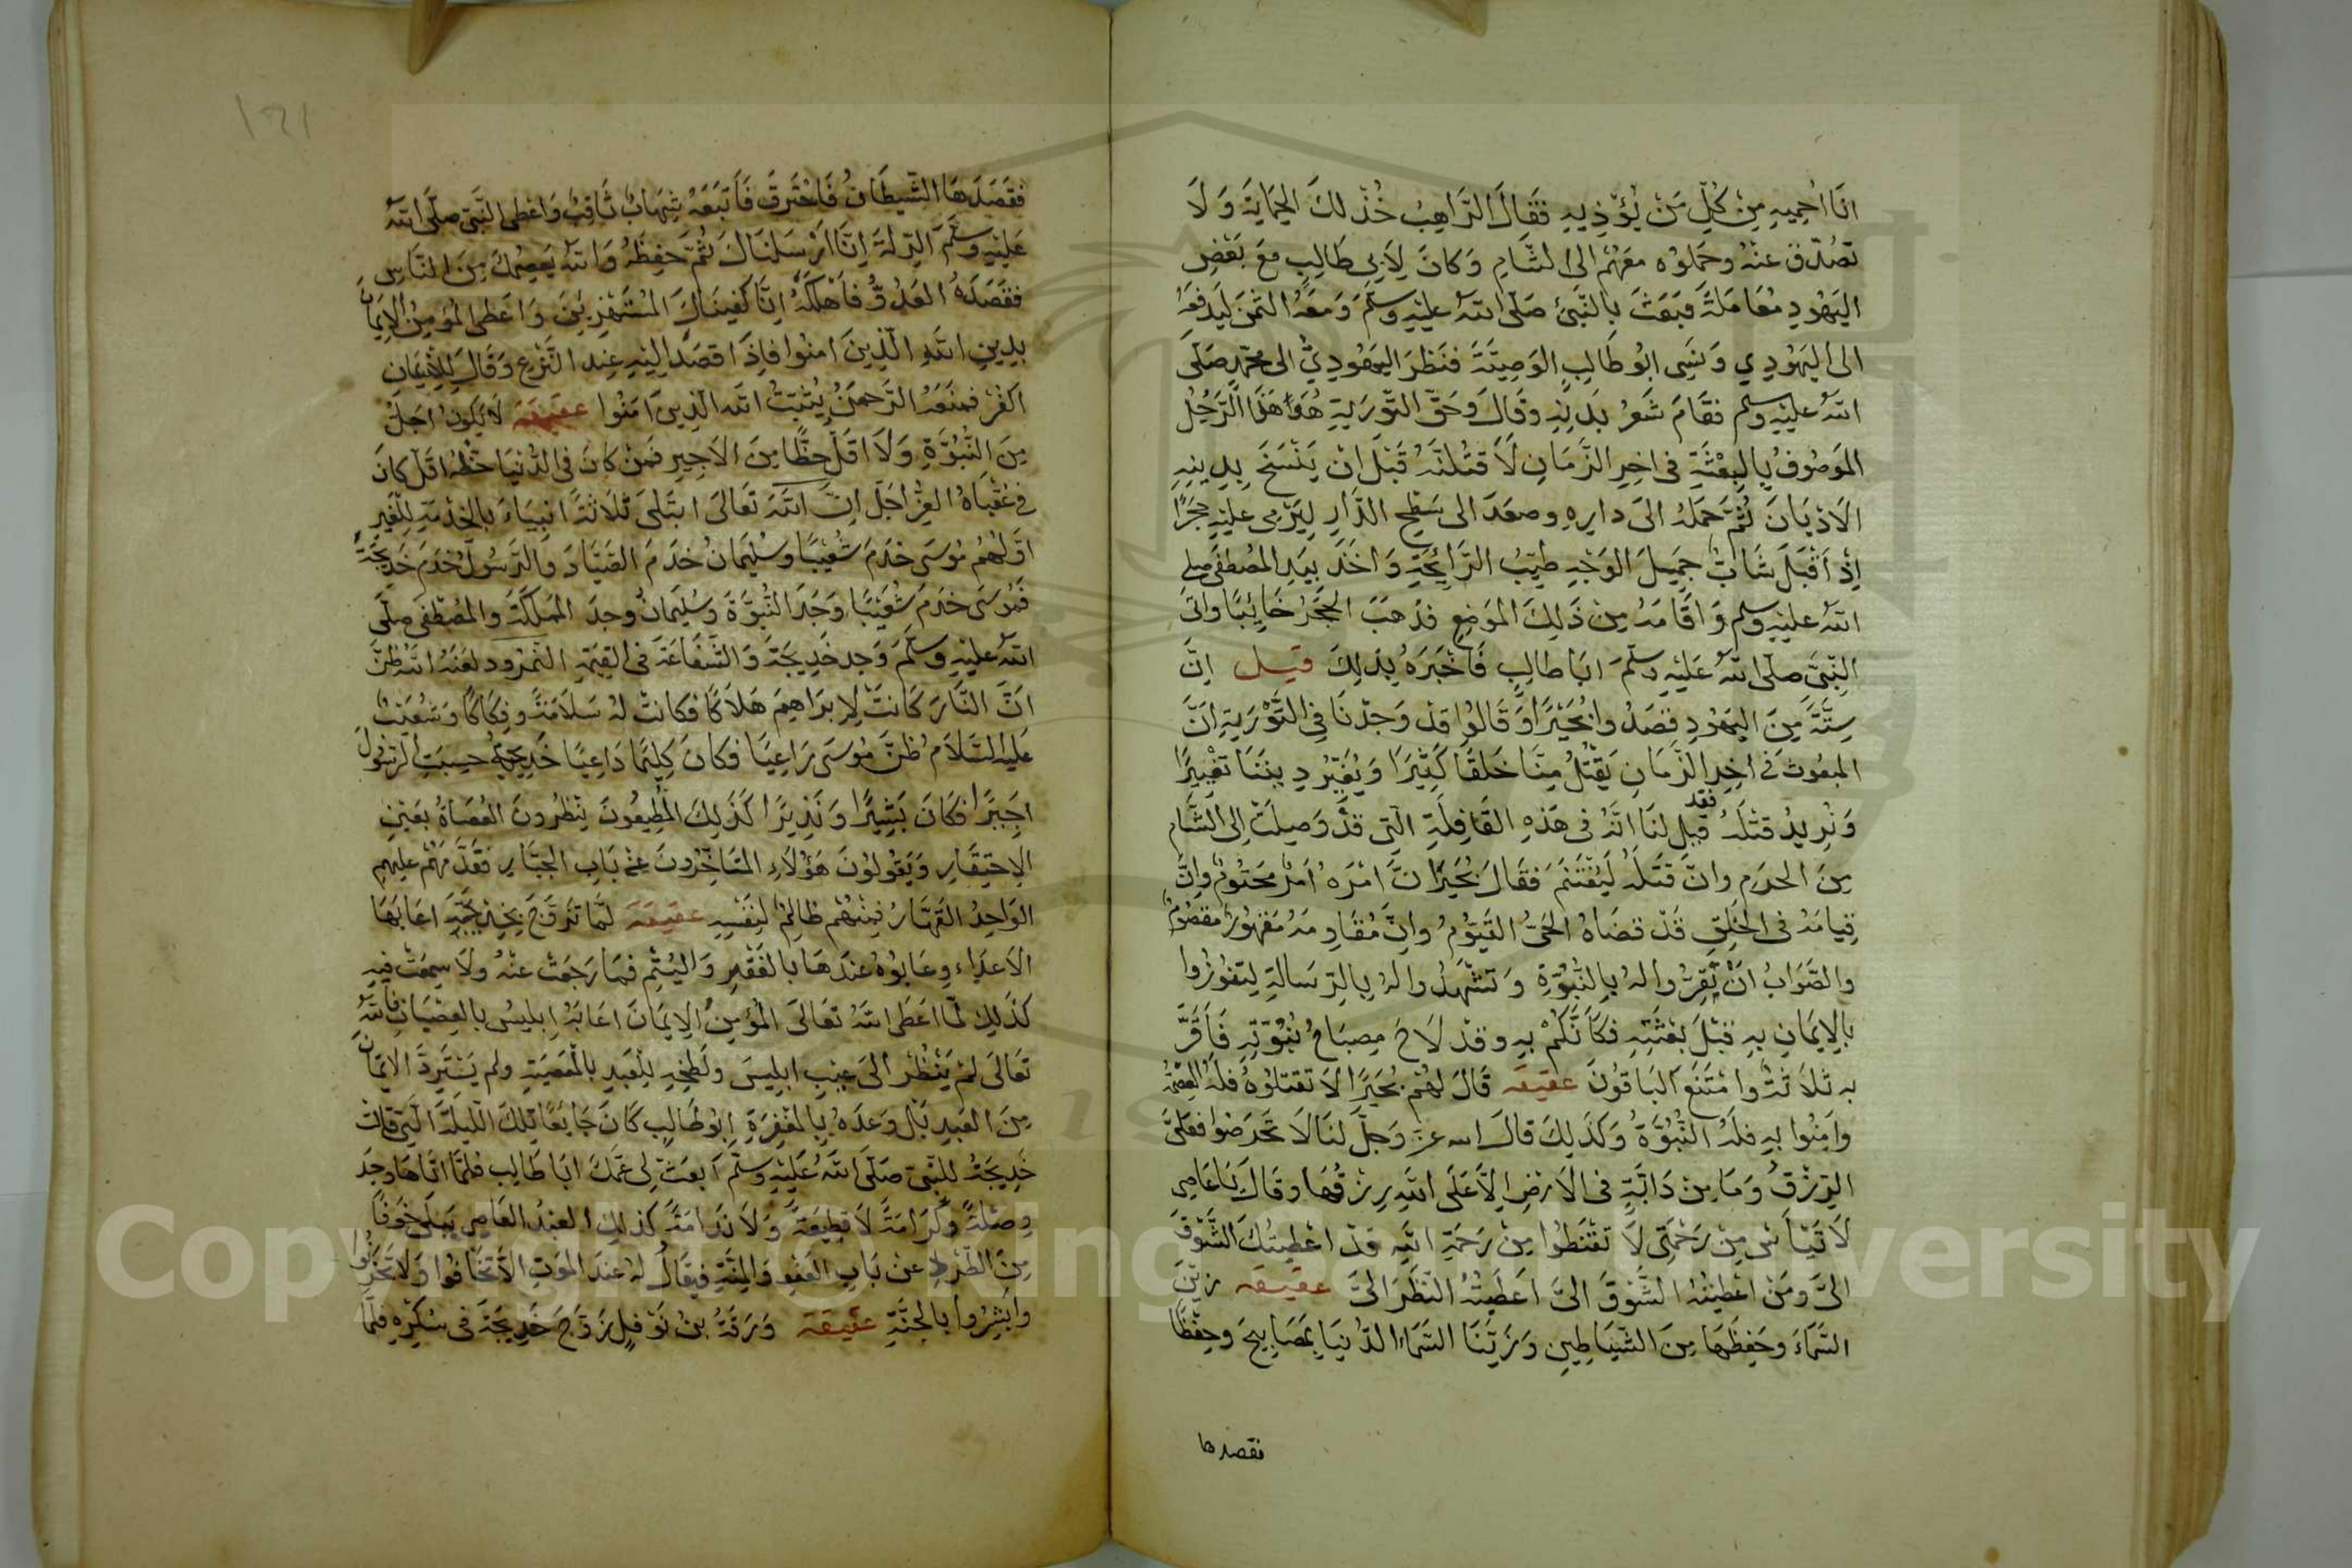 انَا اُحِمِيهِ مِنْ كُلِّ مَنْ يُؤذِيهِ فقَالَ الرَّاهِبُ خُذْ لكَ الحِمَايَةَ وَلَا
تصُدّق عنْهُ وحَملوُه معَهُمْ الى الشَّامِ وَكانَ لِاَبِى طَالِبٍ مَعَ بَعْضِ
اليَهُودِ مُعَامَلَةً فبَعَثَ بِالنَّبِىّ صَلّى اللهُ عليْهِ وسلّمَ وَمعَهُ الثمَنَ لِيَدفعَهُ
الى اليَهُودِي وَنسِىَ ابُو طَالِبٍ الوَصِيَّةَ فنَظرَ اليَهُودِيُّ الى محمّدٍ صَلّى
اللهُ عليْهِ وسلم فقَامَ شَعْرُ بَدنِهِ وقَالَ وحَقِّ التّورَيةِ هُوَ هَذَا الرَّجُلُ
المَوصُوفُ بِالبِعْثَةِ فى اخِرِ الزَّمَانِ لَاَقتُلنّهُ قَبْلَ انْ يَنْسَخَ بِدِينِهِ
الاَدْيَانَ ثُمَّ حَمَلهُ الى دارِهِ وصعَدَ الى سَطْحِ الدَّارِ لِيَرْمِى عليْهِ حَجَرًا
اِذْ اَقْبَلَ شَابٌّ جَمِيلَ الوَجْهِ طيِّبُ الرَّائِحَةِ وَاخَذَ بيَدِ المُصْطفَى صلى
اللهُ عليْهِ وسلم وَاقَامَهُ مِنْ ذَلِكَ المَوْضِعِ فذهَبَ الحَجَرُ خَائِبًا وَاتَى
النّبِىَّ صلّى اللهُ عَليْهِ وسلّمَ ابَا طالِبٍ فَاخْبَرَهُ بِذلِكَ قيل اِنَّ
سِتَّةً مِنَ اليَهُودِ قصَدُوا بُحَيْرًا وَقَالُوا قدْ وَجَدْنَا فِى التَّوْرَيةِ اَنَّ
المَبعُوثَ فى اخِرِ الزَّمَانِ يَقْتُلُ مِنَّا خَلقًا كَثِيرًا وَيُغَيّرُ دِينَنَا تَغْيِيرًا
وَنُرِيدُ قتْلَهُ فقد قِيلَ لنَا انّهُ فى هَذِهِ القَافِلَةِ الّتِى قدْ وَصِلَتْ اِلى الشَّام
مِنَ الحرَمِ وانَّ قَتَلَهُ لَيُغْتَنَم فقَالَ بُحَيرًا انَّ امْرَهُ اَمْرٌ مَحتُومٌ وانَّ
قيامَهُ فى الخَلْقِ قَدْ قضَاهُ الحَىُّ القَيُّومُ وانَّ مُقَاوِمَهُ مَقهُورٌ مقصُومٌ
والصَّوَابُ انْ تُقِرُّوا لهُ بِالنُّبُوَّةِ وَتشْهَدُوا لهُ بِالرِّسَالةِ لِتفُوزُوا
بالاِيمَانِ بِهِ قَبْلَ بعْثَتِهِ فكَاَنَّكُمْ بِهِ وقدْ لَاحَ مِصبَاحُ نُبُوّتِهِ فَاَقَرَّ
بهِ ثَلاثةٌ وامْتَنعَ البَاقُونَ عقيقه قَالَ لهُمْ بُحَيرًا لَا تقتلُوهُ فلَهُ العِصْمَةُ
وامِنُوا بِهِ فلَهُ النُّبُوَّةُ وَكَذَلِكَ قَالَ الله عزّ وَجلَّ لنَا لَا تَحْرَصُوا فعَلىَّ
الرِّزْقُ وَمَا مِنْ دَابَّةٍ فى الاَرْضِ اِلَّا عَلَى اللهِ رِزْقُهَا وقَالَ يَا عَاصِى
لَا تَيْاَسْ مِنْ رَحْمَتِى لَا تقْنَطُوا مِنْ رَحمَةِ اللهِ قدْ اعْطيتُكَ الشَّوْقَ
الىَّ ومَنْ اعْطيتُهُ الشَّوْقَ الىَّ اعَطَيْتُهُ النّظَرَ الىَّ عقيقه زيَّنَ
السَّمَاءَ وحَفِظَهَا مِنَ الشّيَاطِينِ وَزَيَّنَّا السَّمَاءَ الدّنيَا بمَصَابِيحَ وحِفْظًا
فقصدها
١٢١
فقَصَدَهَا الشّيطَانُ فَاحْتَرقَ فَاَتبَعَهُ شِهَابٌ ثَاقِبٌ وَاعْطى النّبىّ صلّى اللهُ
عَليْهِ وسلّمَ الرِّسَالةَ اِنَّا اَرْسَلنَاكَ ثُمّ حَفِظَهُ وَاللهُ يَعصِمُكَ مِنَ النَّاسِ
فقَصَدَهُ العَدُوُّ فاَهْلكَهُ اِنَّا كَفينَاكَ المُسْتَهْزِئِينَ وَاعَطَى المُؤمِنُ الاِيمَانَ
بدِينِ اللهِ الَّذِينَ امنُوا فاِذَا قصَدَ اِليْهِ عِنْد النَّزْعِ وَقَالَ لِلاِنْسَانِ
اكفُرْ فمنَعَهُ الرَّحمَنُ يُثَبّتُ الله الّذِينَ آمَنُوا عقيقة لَا يَكُونُ اجَلُّ
مِنَ النُّبُوَّةِ وَلَا اقَلّ حظًّا مِنَ الاَجِيرِ فمَنْ كانَ فى الدُّنيَا حَظّهُ اقلّ كانَ
فى عُقْبَاهُ العِزُّ اجَلّ انَّ اللهَ تعَالى ابتَلىَ ثَلَاثَةً انبِيَاءَ بِالخِدْمَةِ لِلْغَيرِ
اوّلهُمُ مُوسَى خدَمَ شُعَيْبًا وَسُلَيْمَانُ خدَمَ الصَّيَّادَ والرَّسُولُ خدَمَ خَدِيجَةَ
فمُوسَى خدَمَ شُعَيْبًا وَجَدَ النُّبُوَّةَ وَسُليمَانُ وجدَ المَمْلكَةَ والمُصْطفَى صلّى
اللهُ عليْهِ وسلّمَ وَجدَ خَدِيجَةَ وَالشّفَاعَةَ فى القِيمَةِ النّمرُود لعَنَهُ اللهُ ظنَّ
انَّ النَّارَ كَانَتْ لِاِبرَاهِيمَ هَلَاكًا فكَانتْ لهُ سَلَامَةً وفِكَاكًا وَشُعَيْبٌ
عليْهِ السَّلَام ظنَّ مُوسَى رَاعِيًا فكَانَ كِليمًا دَاعِيًا خَدِيجَةُ حسِبَتِ الرَّسُولَ
اجِيرًا فكَانَ بَشِيرًا وَنَذِيرًا كَذَلِكَ المُطِيعُونَ ينْظُرونَ العُصَاةُ بعَيْنِ
الاِحتِقَارِ وَيَقُولُونَ هَؤُلَاءِ المتَاَخِّرُونَ عَنْ بَابِ الجَبَّارِ فقَدَّمَهُمْ عليْهِمِ
الوَاحِدُ القَهَّارُ فمِنْهُمْ ظالِمٌ لِنَفْسِهِ عقيقة لمّا تزَوَّجَ بِخَدِيجَةَ اعَابَهَا
الاَعدَاءِ وعَابُوهُ عندَهَا بالفَقْرِ وَاليُتْمِ فمَا رَجَعَتْ عنْهُ ولَا سمِعَتْ فيهِ
كذَلِكَ لمّا اعَطى اللهُ تعَالى المُؤمِنُ الاِيمَانَ اعَابَهُ اِبليسُ بالعِصْيَانِ فاللهُ
تعَالى لمْ يَنْظُرْ الى عَيْبِ ابلِيسَ ولَطْخِهِ لِلعَبدِ بالمَعْصِيَةِ ولم يَسْتَرِدَّ الاِيمَانَ
مِنَ العَبدِ بَلْ وَعَدَهُ بِالمَغْفِرَةِ ابُو طَالِبٍ كَانَ جَايِعًا تِلكَ اللّيلَةَ الّتِى قَالت
خَدِيجَةُ للنّبِىّ صَلّى اللهُ عَليْهِ وسلّم اَبعَثْ لِى عَمّكَ ابَا طَالِبٍ فلمَّا اتَاهَا وجدَ
وصْلةً وَكَرَامَةً لَا قطِيعَةً وَلَا نَدَامَةً كذلِكَ العبْدُ العَاصِى يَبْكى خَوْفًا
مِنَ الطّرْدِ عنْ بَابِ العَفْوِ وَالمِنَّةِ فيقَالُ لهُ عندَ المَوْتِ الَّا تخَافُوا وَلَا تَحْزَنُوا
وابْشِرُوا بالجَنَّةِ عقيقة وَرَقَةُ بنُ نَوْفلٍ زَوَّجَ خَدِيجَةَ فى سُكْرِهِ فلمَّا